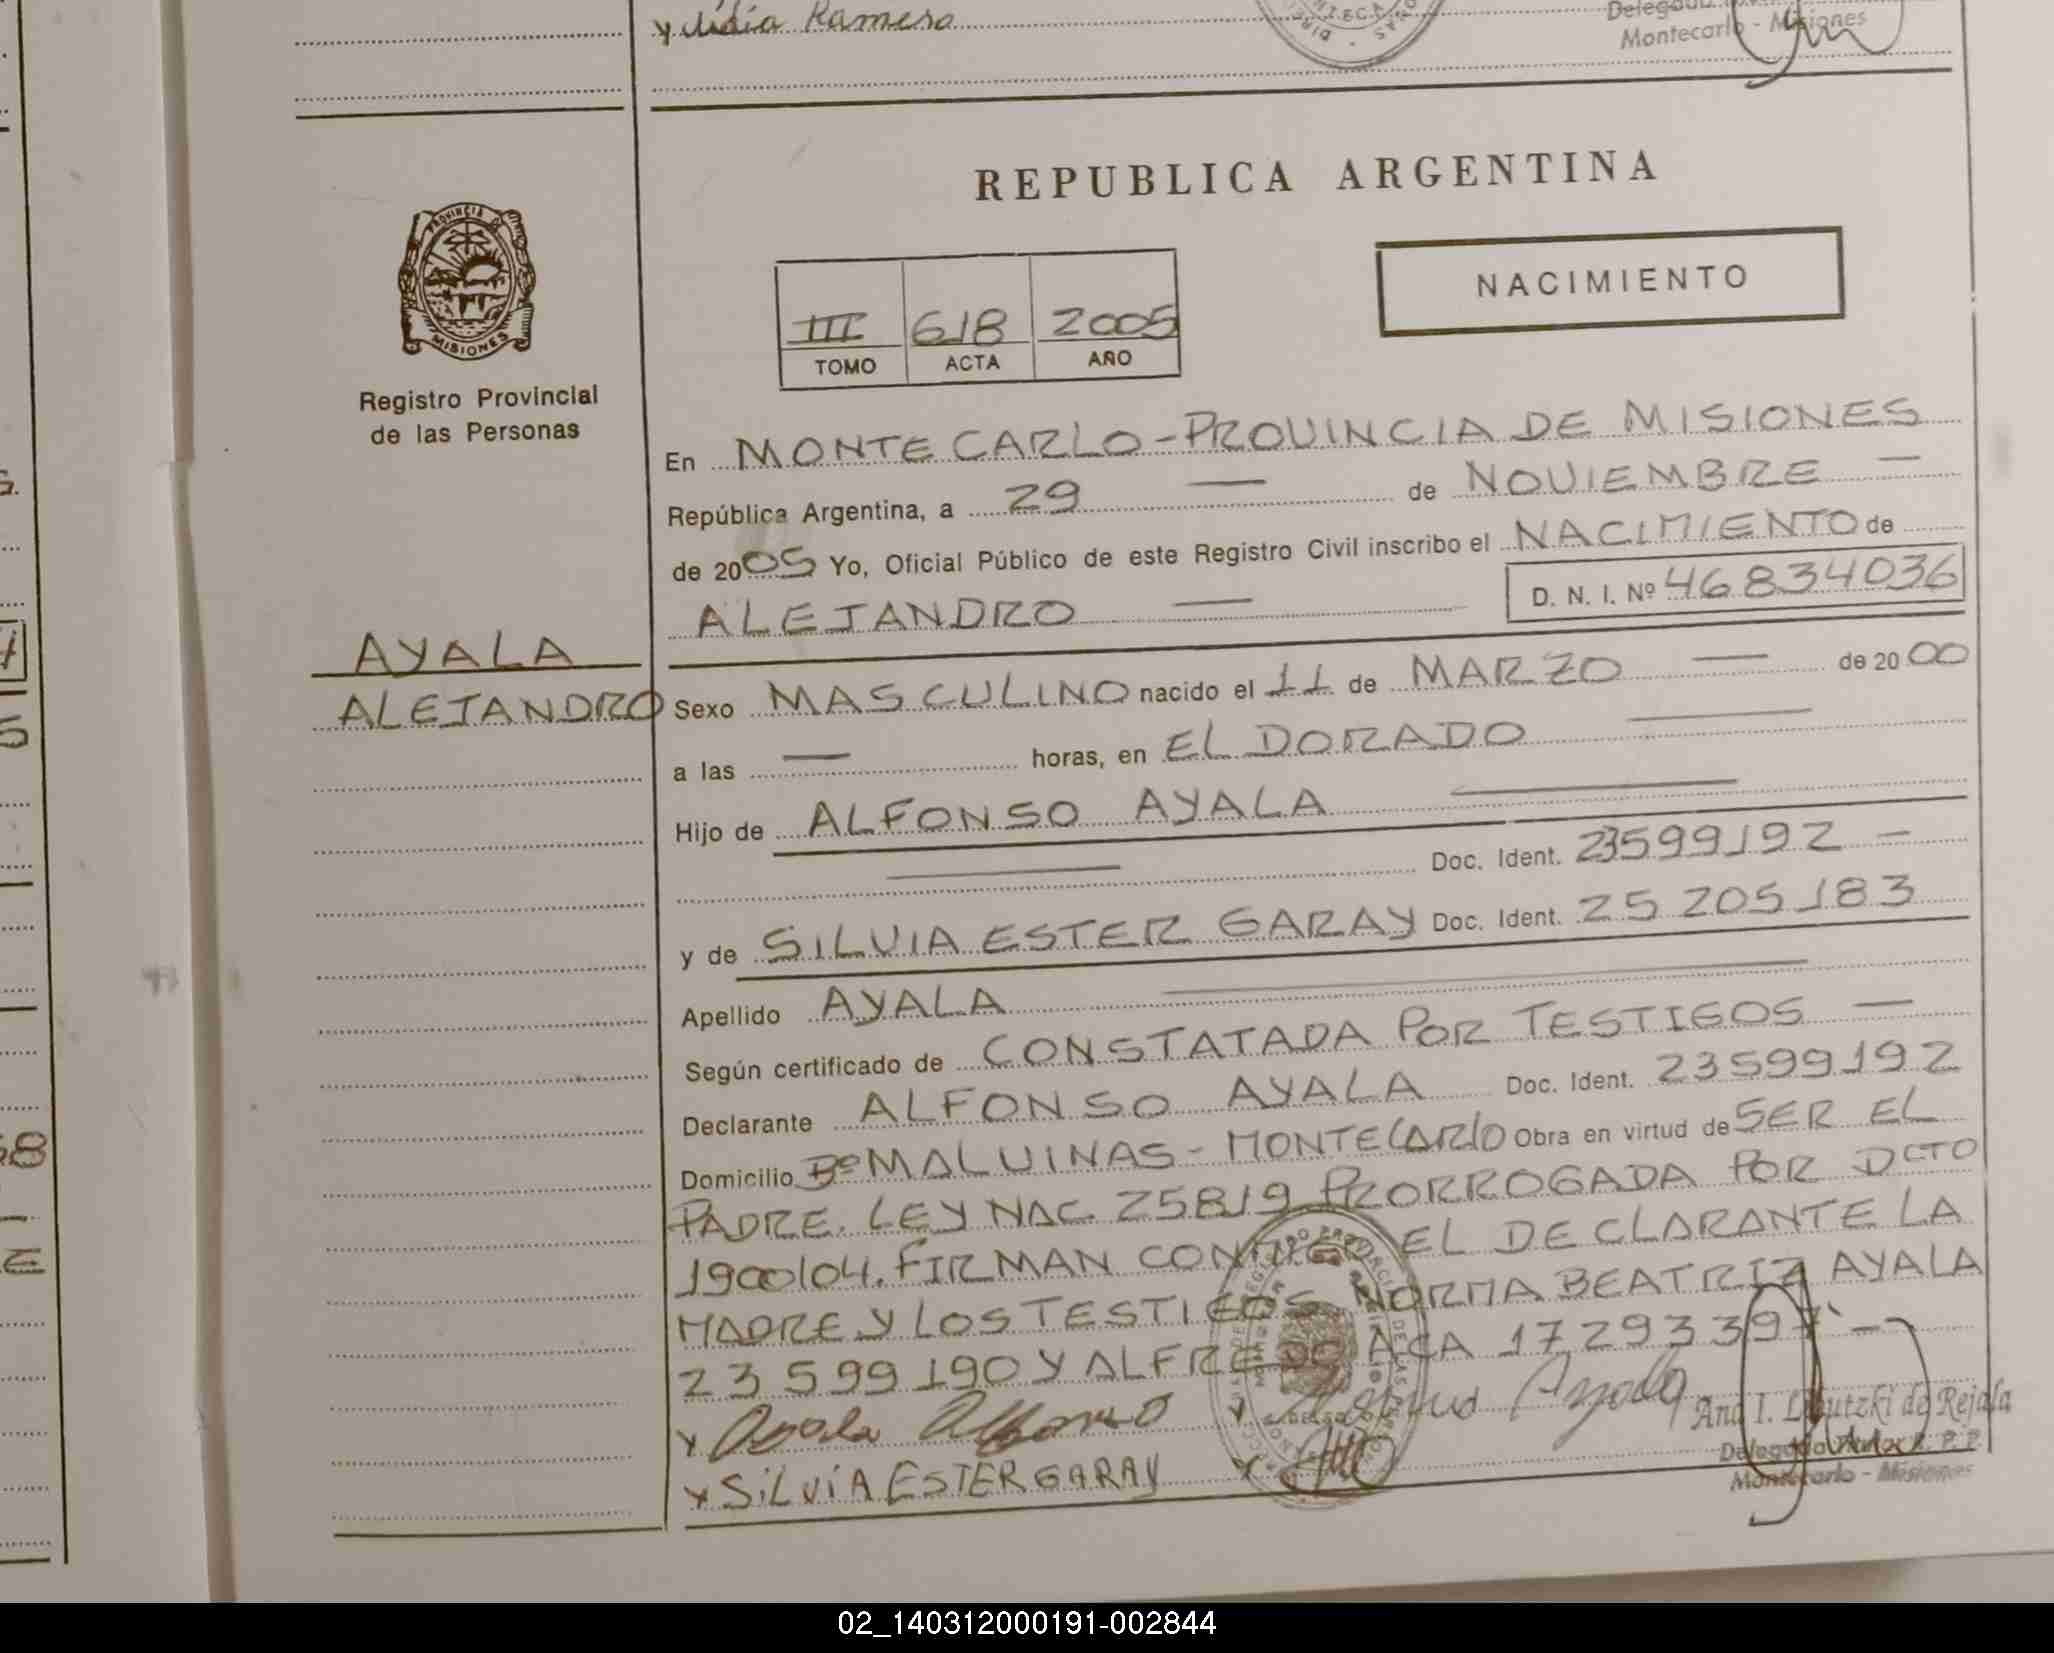 y Lidia Ramera
Montecarlo - Misiones
REPUBLICA ARGENTINA
NACIMIENTO
III 618 2005
TOMO ACTA AÑO
PROVINCIA DE
MISIONES
Registro Provincial
de las Personas
En MONTECARLO - PROVINCIA DE MISIONES
República Argentina, a 29 — de NOVIEMBRE —
de 2005 Yo, Oficial Público de este Registro Civil inscribo el NACIMIENTO de
ALEJANDRO — D. N. I. Nº 46834036
AYALA
ALEJANDRO
Sexo MASCULINO nacido el 11 de MARZO — de 2000
a las — horas, en EL DORADO —
Hijo de ALFONSO AYALA —
— Doc. Ident. 23599192 —
y de SILVIA ESTER GARAY Doc. Ident. 25205183
Apellido AYALA —
Según certificado de CONSTATADA POR TESTIGOS —
Declarante ALFONSO AYALA Doc. Ident. 23599192
Domicilio Bº MALVINAS - MONTECARLO Obra en virtud de SER EL
PADRE. LEY NAC. 25819 PRORROGADA POR DCTO
1900/04. FIRMAN CONMIGO EL DECLARANTE LA
MADRE Y LOS TESTIGOS NORMA BEATRIZ AYALA
23599190 Y ALFREDO ACA 17293397 —
x Ayala Alfonso x Norma Ayala
Ana I. de Rejala
x SILVIA ESTER GARAY x
Montecarlo - Misiones
02_140312000191-002844